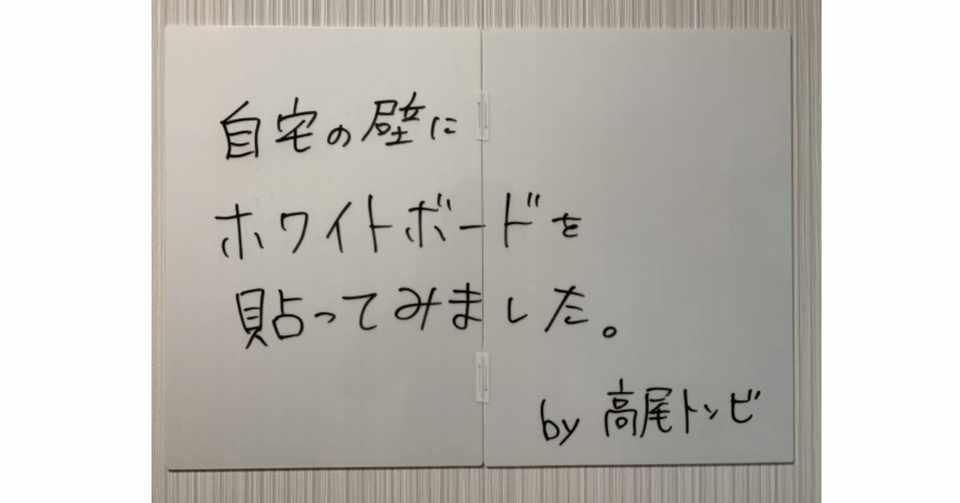 自宅の壁に
ホワイトボードを
貼ってみました。
by 高尾トンビ